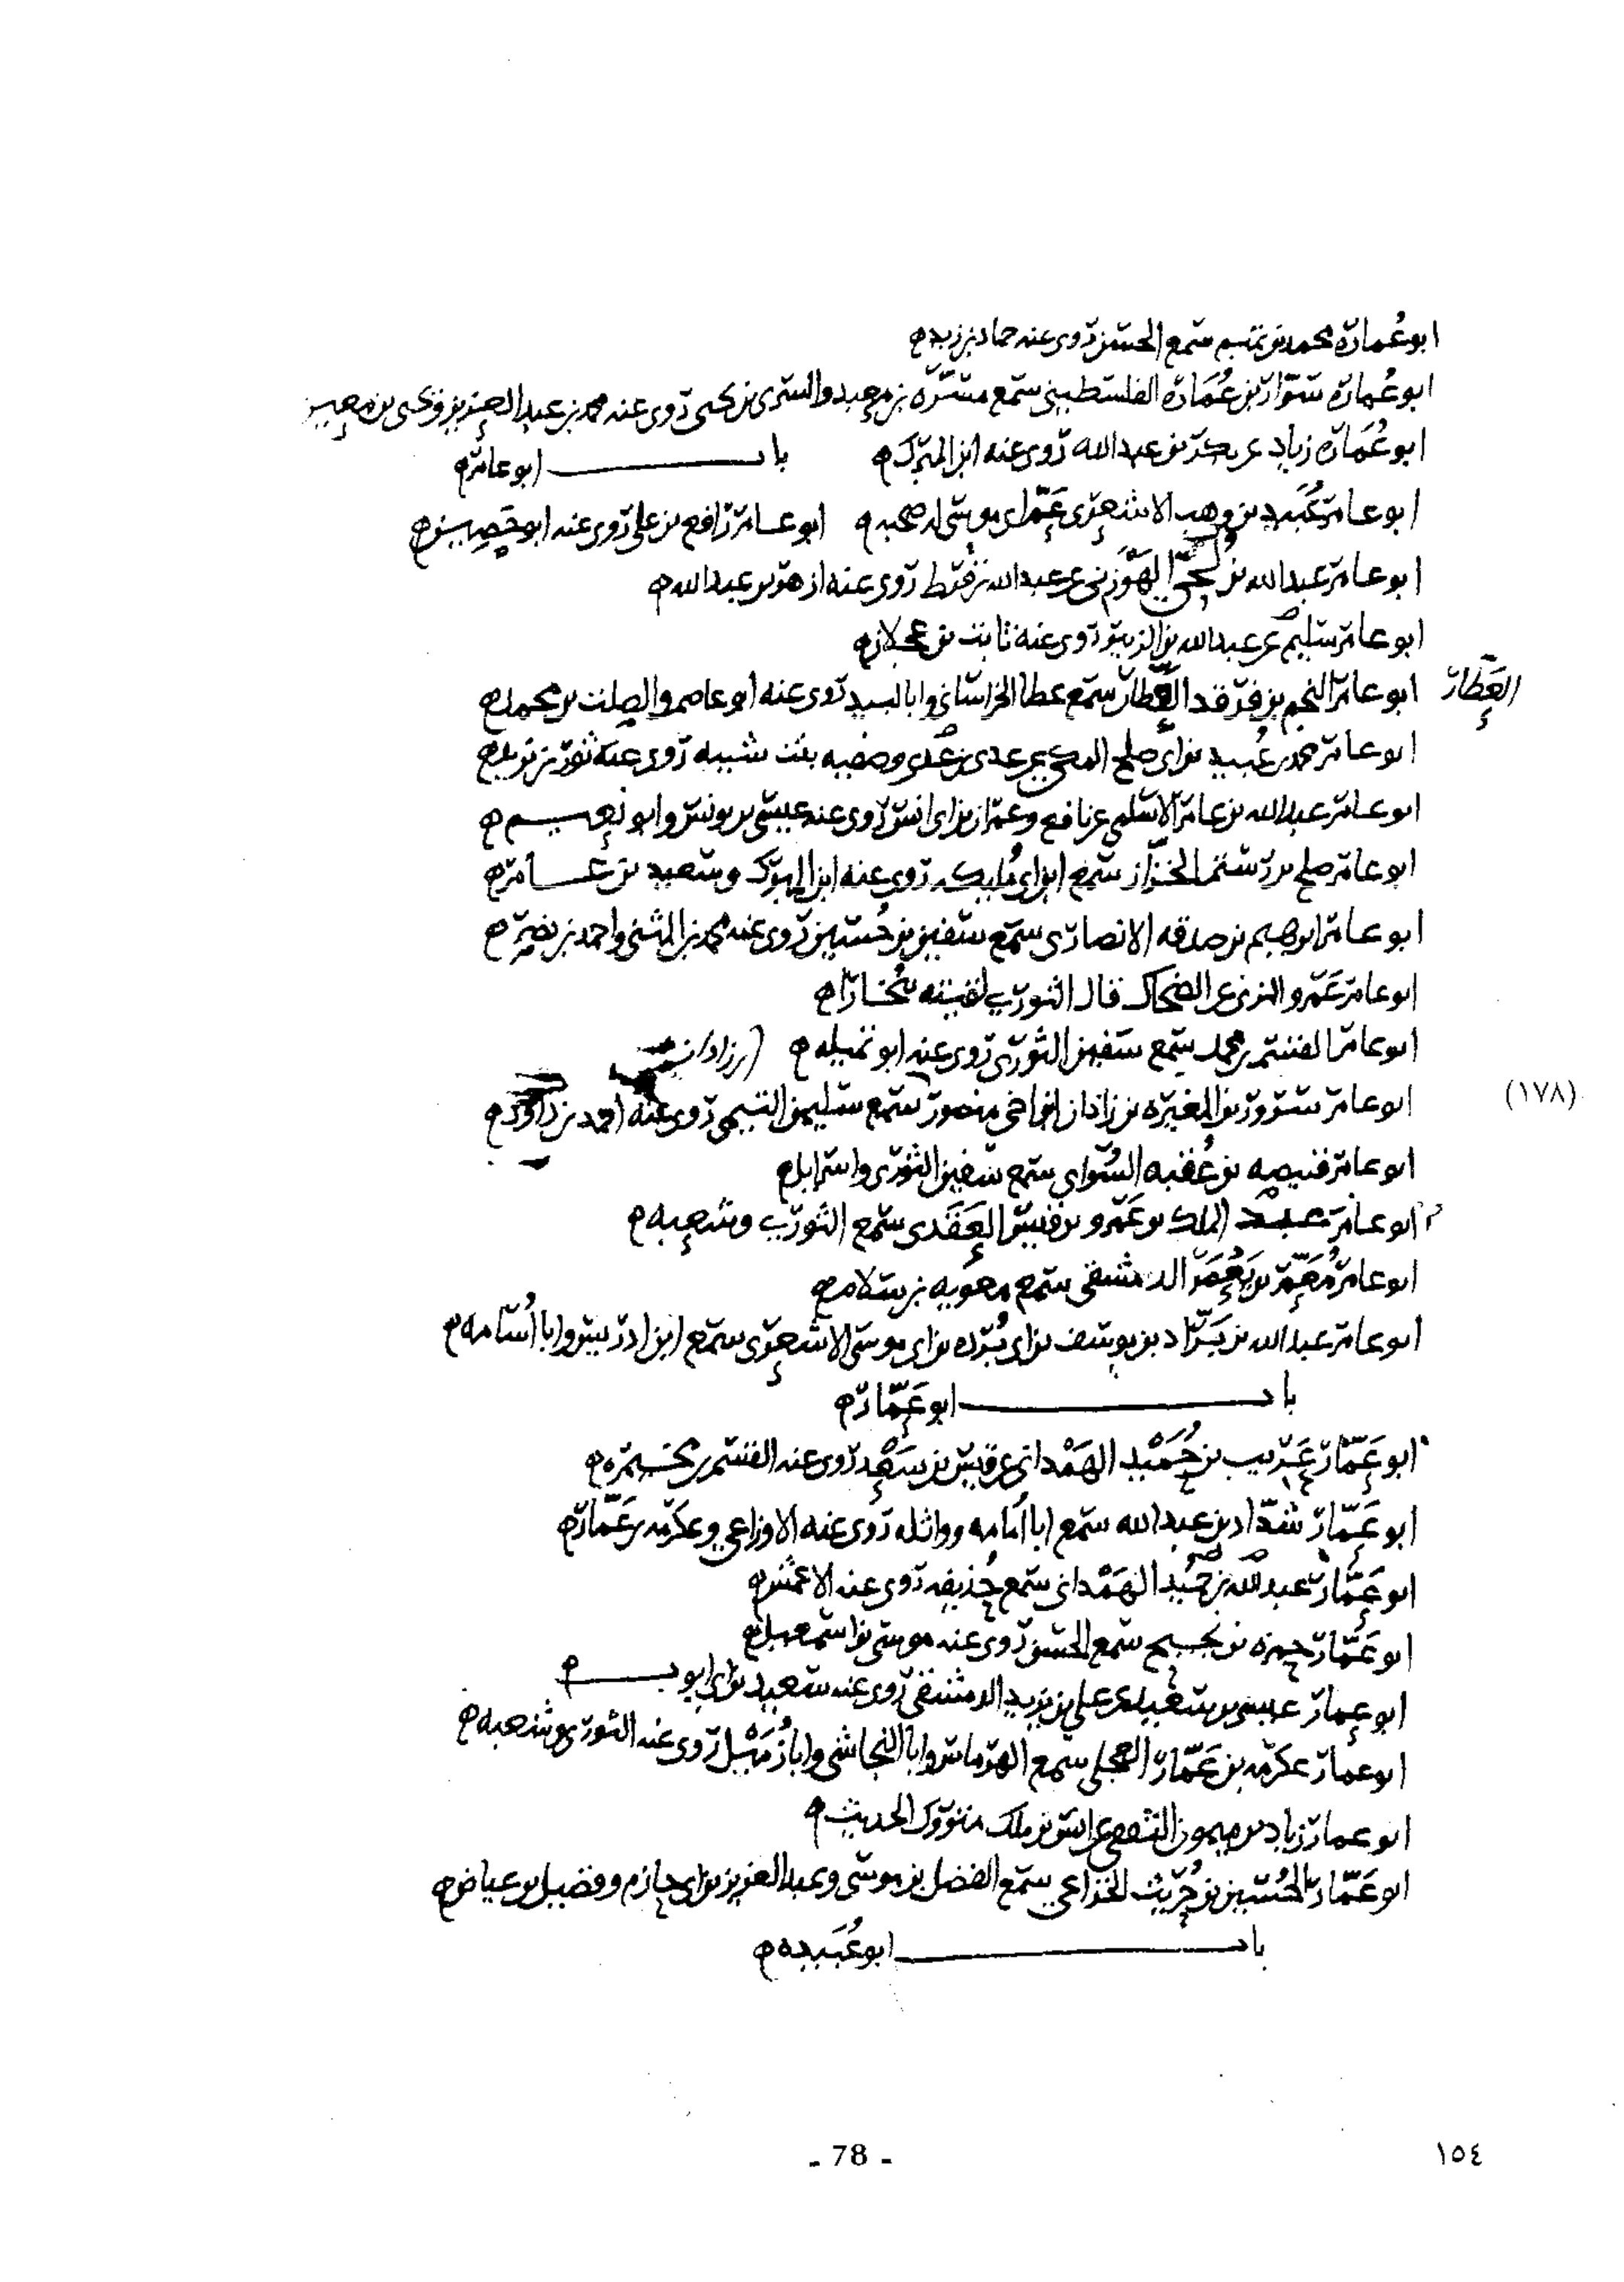 ابو عُمارة محمد بن تميم سمع الحسن روى عنه حماد بن زيد
ابو عُمارة سوّار بن عُمَارة الفلسطيني سمع مسَرّة بن معبد والسرى بن يحيى روى عنه محمد بن عبد العزيز ويحيى بن معين
ابو عُمَارة زياد عن بكر بن عبد الله روى عنه ابن المبرك
باب ابو عامر
ابو عامر عُبَيد بن وهب الاشعرى عَمّ ابى موسى له صحبه
ابو عامر رافع بن على روى عنه ابو حَصِين
ابو عامر عبد الله بن لُحَىّ الهَوْزنى عن عبد الله بن قرط روى عنه ازهر بن عبد الله
ابو عامر سليم عن عبد الله بن الزبير روى عنه ثابت بن عجلان
العَطّار
ابو عامر النجم بن فرقد العَطّار سمع عطا الخراسانى وابا السيد روى عنه ابو عاصم والصلت بن محمد
ابو عامر محمد بن عُبيد بن ابى صلح المكي عن عدى بن عدى وصفيه بنت شيبه روى عنه ثور بن يزيد
ابو عامر عبد الله بن عامر الاسلمى عن نافع وعمران بن ابى انس روى عنه عيسى بن يونس وابو نعيم
ابو عامر صلح بن رستم الخزّاز سمع ابن ابى مُليكه روى عنه ابن المبرك وسعيد بن عامر
ابو عامر ابرهيم بن صدقه الانصارى سمع سفين بن حُسين روى عنه محمد بن المثنى واحمد بن نصر
ابو عامر عَمرو المزنى عن الضحاك قال الثورى لقيته بُخارا
ابو عامر القسم بن محمد سمع سفين الثورى روى عنه ابو تميله
(١٧٨)
ابو عامر سرور بن المغيره بن زاذان ابن اخى منصور سمع سليمن التيمى روى عنه احمد بن داود
ابو عامر قبيصه بن عُقبه السُوَاى سمع سفين الثورى واسرايل
ابو عامر عبد الملك بن عَمرو بن قيس العَقَدى سمع الثورى وشعبه
ابو عامر مُعَمَّر بن يَعْمَر الدمشقى سمع معويه بن سلام
ابو عامر عبد الله بن بَرّاد بن يوسف بن ابى بُرده بن ابى موسى الاشعرى سمع ابن ادريس وابا اُسامه
باب ابو عَمّار
ابو عَمّار عَرِيب بن حُمَيْد الهَمْدانى عن قيس بن سَعْد روى عنه القسم بن مخيمره
ابو عَمّار شدّاد بن عبد الله سمع ابا اُمامه وواثله روى عنه الاوزاعي وعكرمه بن عَمّار
ابو عَمّار عبد الله بن حُميد الهَمْدانى سمع حُذيفه روى عنه الاعمش
ابو عَمّار حمزه بن نجيح سمع الحسن روى عنه موسى بن اسمعيل
ابو عمار عيسى بن سعيد عن على بن يزيد الدمشقى روى عنه سعيد بن ابى ايوب
ابو عمار عكرمه بن عَمّار العجلى سمع الهرماس وابا النجاشى وابا زُمَيْل روى عنه الثورى وشعبه
ابو عمار زياد بن ميمون الثقفى عن انس بن ملك متروك الحديث
ابو عَمّار الحُسين بن حُريث الخزاعي سمع الفضل بن موسى وعبد العزيز بن ابى حازم وفضيل بن عياض
باب ابو عُبَيده
- 78 -
١٥٤